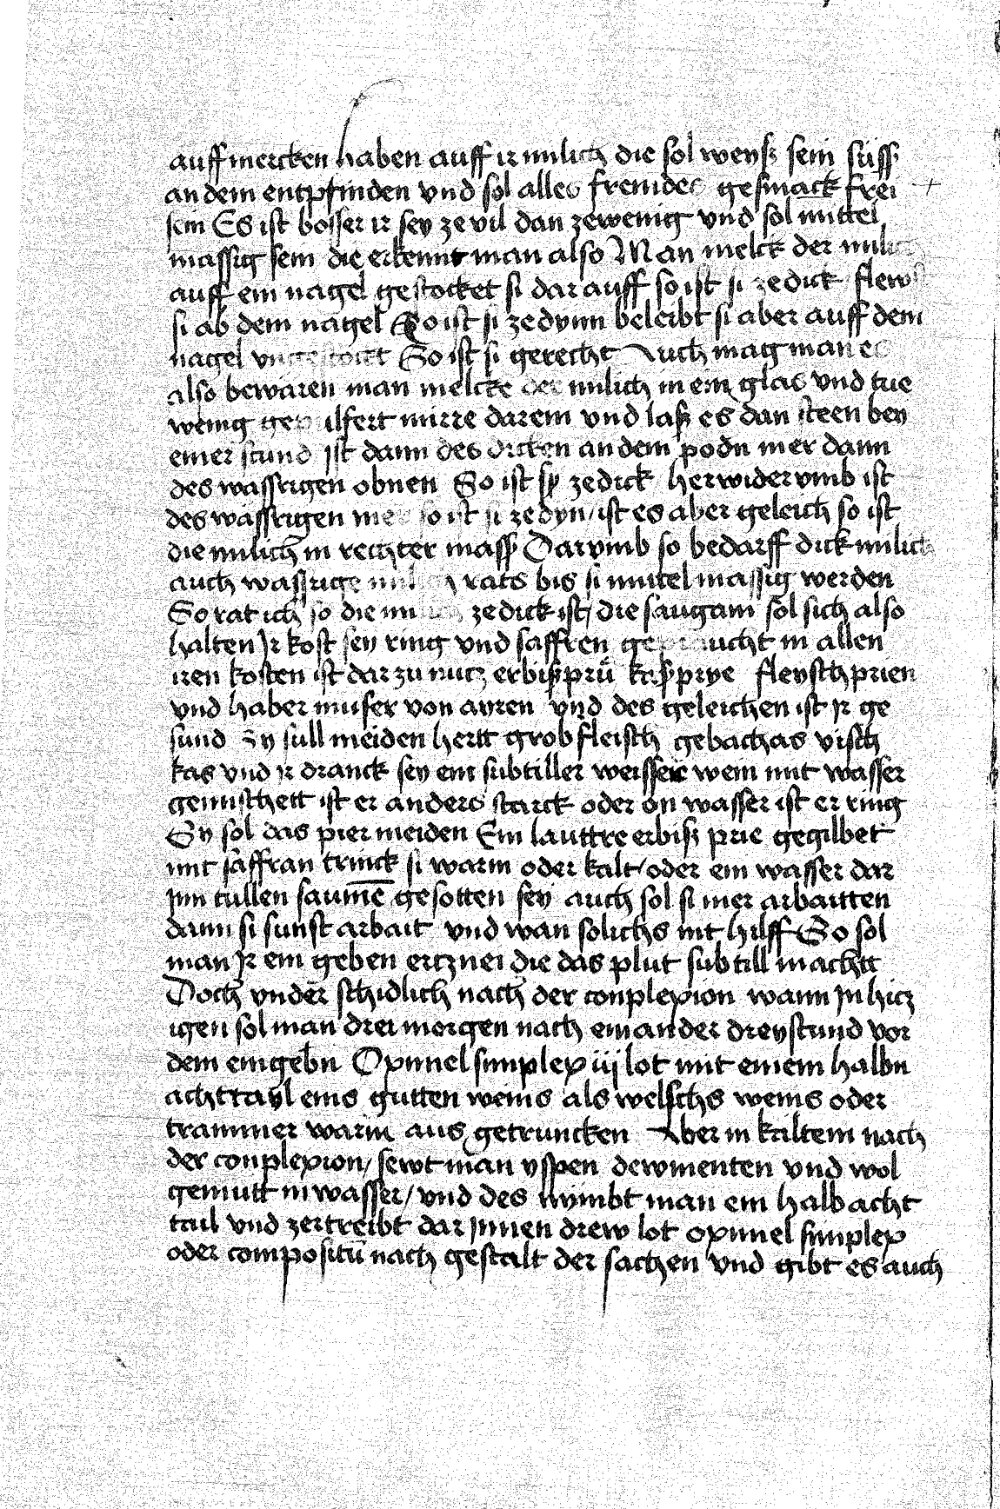 auff mercken haben auff ir milich die sol weysz sein süss
an dem entpfinden vnd sol alles fremdes gesmack frei
sein Es ist bosser ir sey ze vil dan ze wenig vnd sol mittel
massig sein die erkennt man also Man melck der milich
auff ein nagel gestocket si dar auff so ist si ze dick flews
si ab dem nagel So ist si ze dynn beleibt si aber auff dem
nagel vngestockt So ist si gerecht Auch mag man es
also bewaren man melcke der milich in ein glas vnd tue
wenig gepulfert mirre darein vnd lasz es dan steen bey
einer stund ist dann des dicken an dem podn mer dann
des wassrigen obnen So ist sy ze dick herwider vmb ist
des wassrigen mer so ist si ze dyn / ist es aber geleich so ist
die milich in rechter mass Darvmb so bedarff dick milich
auch wassrige milich rats bis si mittelmassig werden
So rat ich so die milich ze dick ist / die saugam sol sich also
halten Ir kost sey ring vnd saffren gepraucht in allen
iren kosten ist dar zu nutz erbiszprü kaszprye fleyschprien
vnd haber muser von ayren vnd des geleichen ist ir ge
sund Sy sull meiden hertt grob fleisch gebachas visch
kas vnd ir dranck sey ein subtiller weisser wein mit wasser
gemischett ist er anders starck oder on wasser ist er ring
Sy sol das pier meiden Ein lauttre erbisz prie gegilbet
mit saffran trinck si warm oder kalt / oder ein wasser dar
jnn tullen saumē gesotten sey auch sol si mer arbaitten
dann si sunst arbait vnd wan solichs nit hilff So sol
man Ir ein geben ertznei die das plut subtill machtt
Doch vnder schidlich nach der conplexion wann jn hicz
igen sol man drei morgen nach einander dreystund vor
dem eingebn Oximel simplex iij lot mit einem halbn
achttayl eins gutten weins als welschs weins oder
traminer warm aus getruncken Aber in kaltem nach
der conplexion / sewt man yspen dewmenten vnd wol
gemutt in wasser / vnd des nyimbt man ein halb acht
tail vnd zertreibt dar jnnen drew lot oximel simplex
oder compositū nach gestalt der sachen vnd gibt es auch